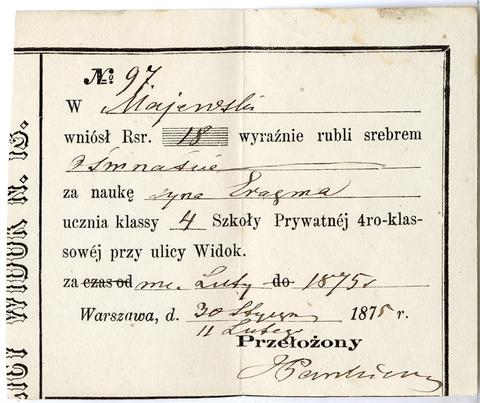 № 97
W Majewski
wniósł Rsr. 18 wyraźnie rubli srebrem
Ośmnaście
za naukę syna Erazma
ucznia klassy 4 Szkoły Prywatnéj 4ro-klas-
sowéj przy ulicy Widok.
za czas od mc. Luty do 1875 r
Warszawa, d. 30 Stycznia 1875 r.
11 Lutego
Przełożony
WIDOK N. 13.